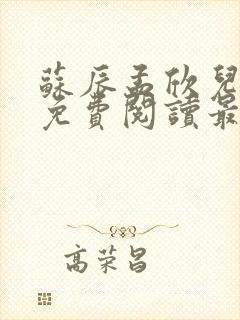 蘇辰孟欣兒
免費閱讀最
高荣昌